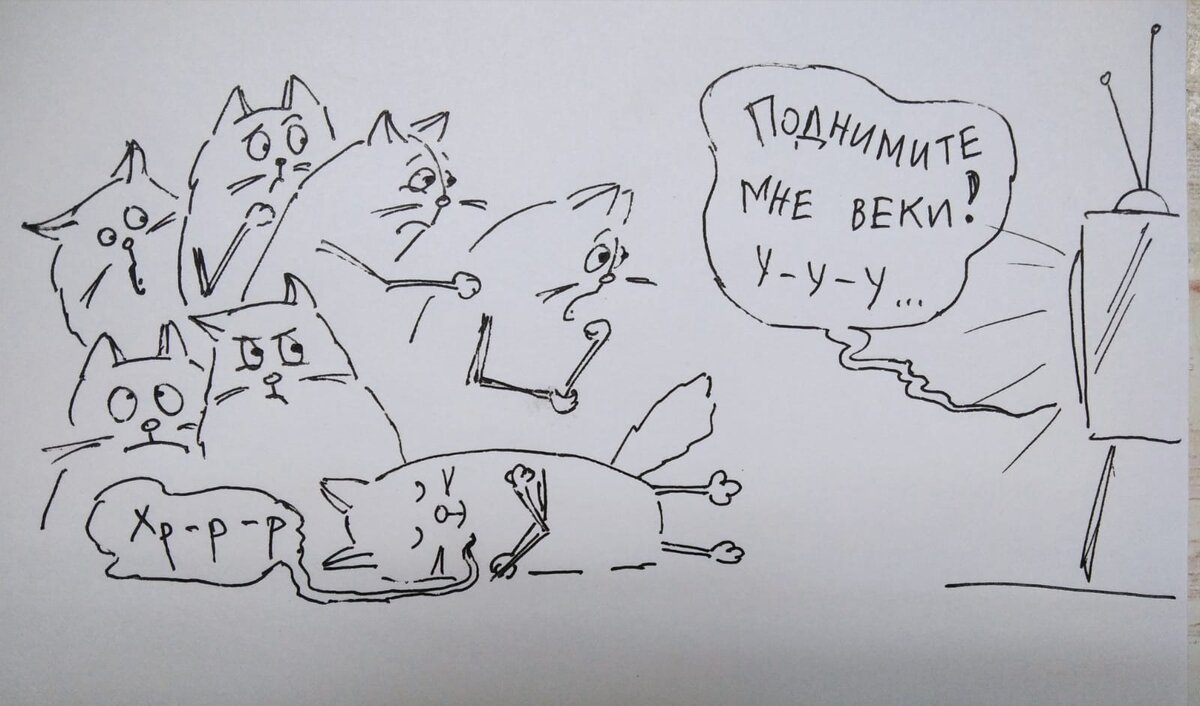 Поднимите
мне веки!
У-у-у...
Хр-р-р